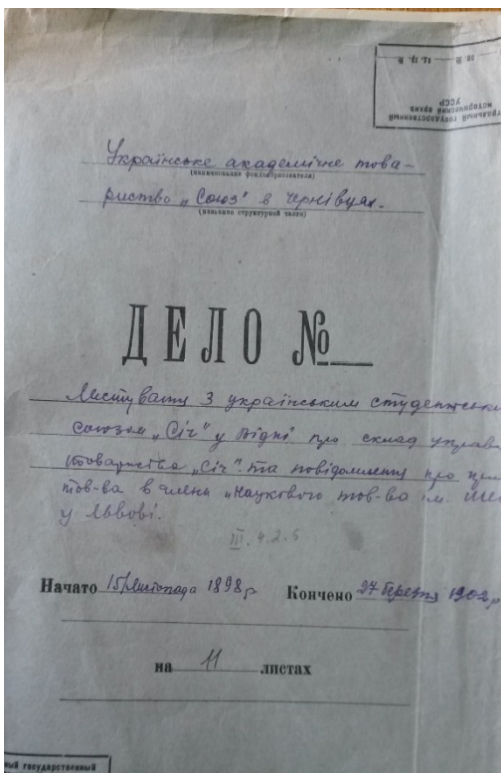 Українське академічне това-
(наименование фондообразователя)
риство „Союз" в Чернівцях.
(название структурной части)
ДЕЛО №
Листування з українським студентськи
союзом „Січ" у Відні про склад управ
товариства „Січ" та повідомлення про при
тов-ва в члени „Наукового тов-ва ім. Ше
у Львові.
III. 4.2.6
Начато 15 Листопада 1898 р Кончено 27 березня 1902 р
на 11 листах
ный государственный